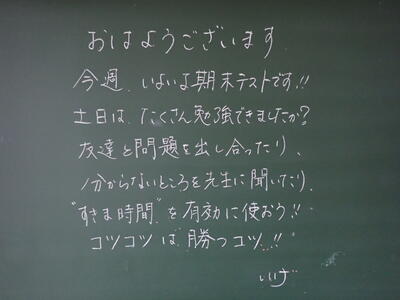 おはようございます
今週、いよいよ期末テストです!!
土日は、たくさん勉強できましたか?
友達と問題を出し合ったり、
分からないところを先生に聞いたり、
"すきま時間"を有効に使おう!!
コツコツは勝つコツ!!